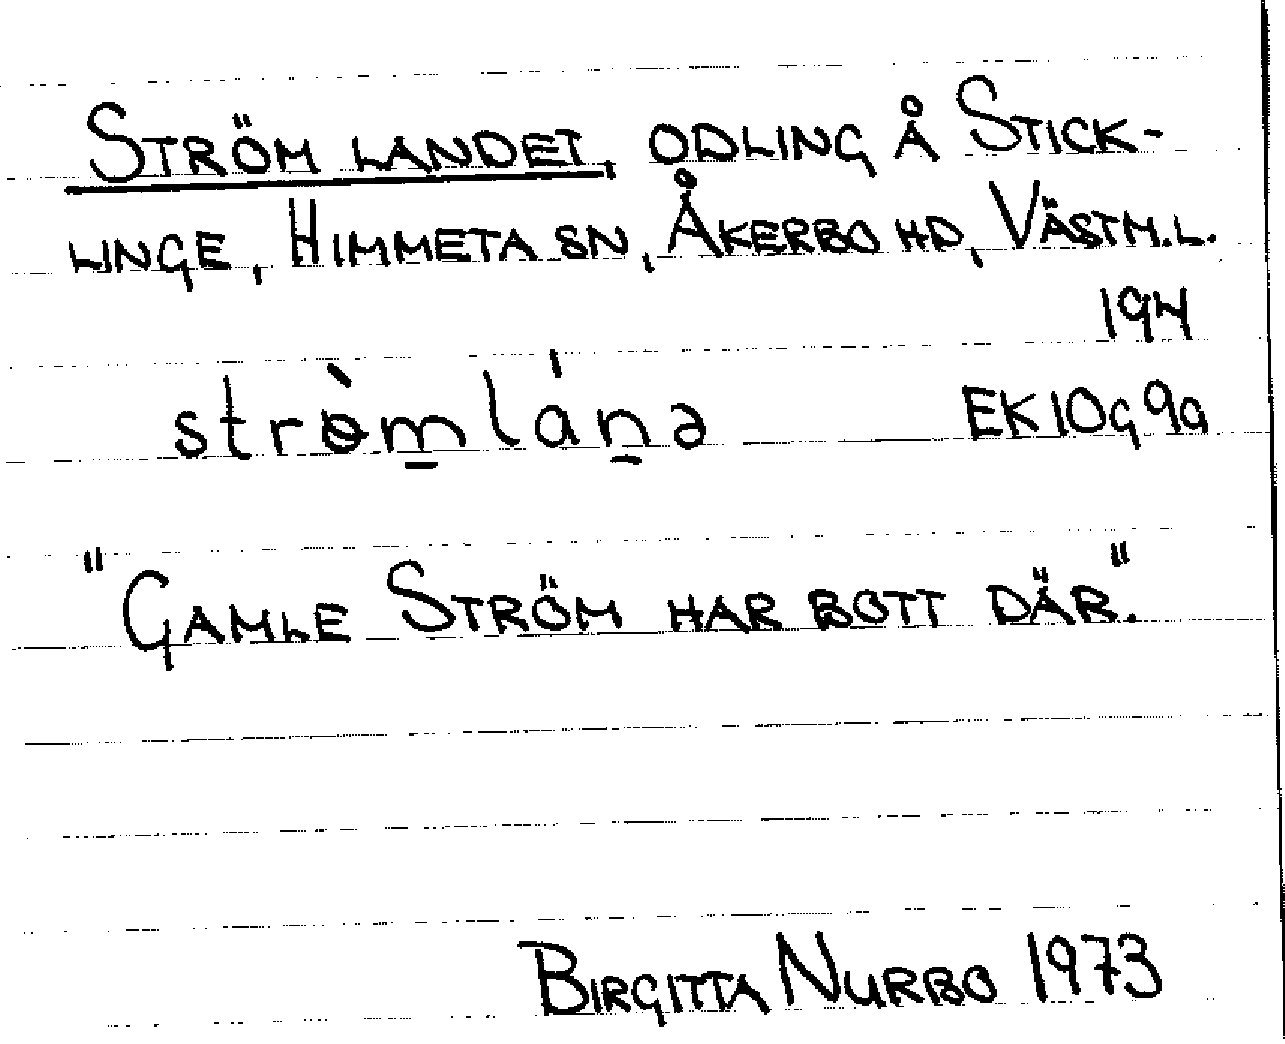 STRÖMLANDET, ODLING Å STICK-
LINGE, HIMMETA SN, ÅKERBO HD, VÄSTM.L.
194
strɵ̀m̲lán̲ə EK10G9a
"GAMLE STRÖM HAR BOTT DÄR."
BIRGITTA NURBO 1973